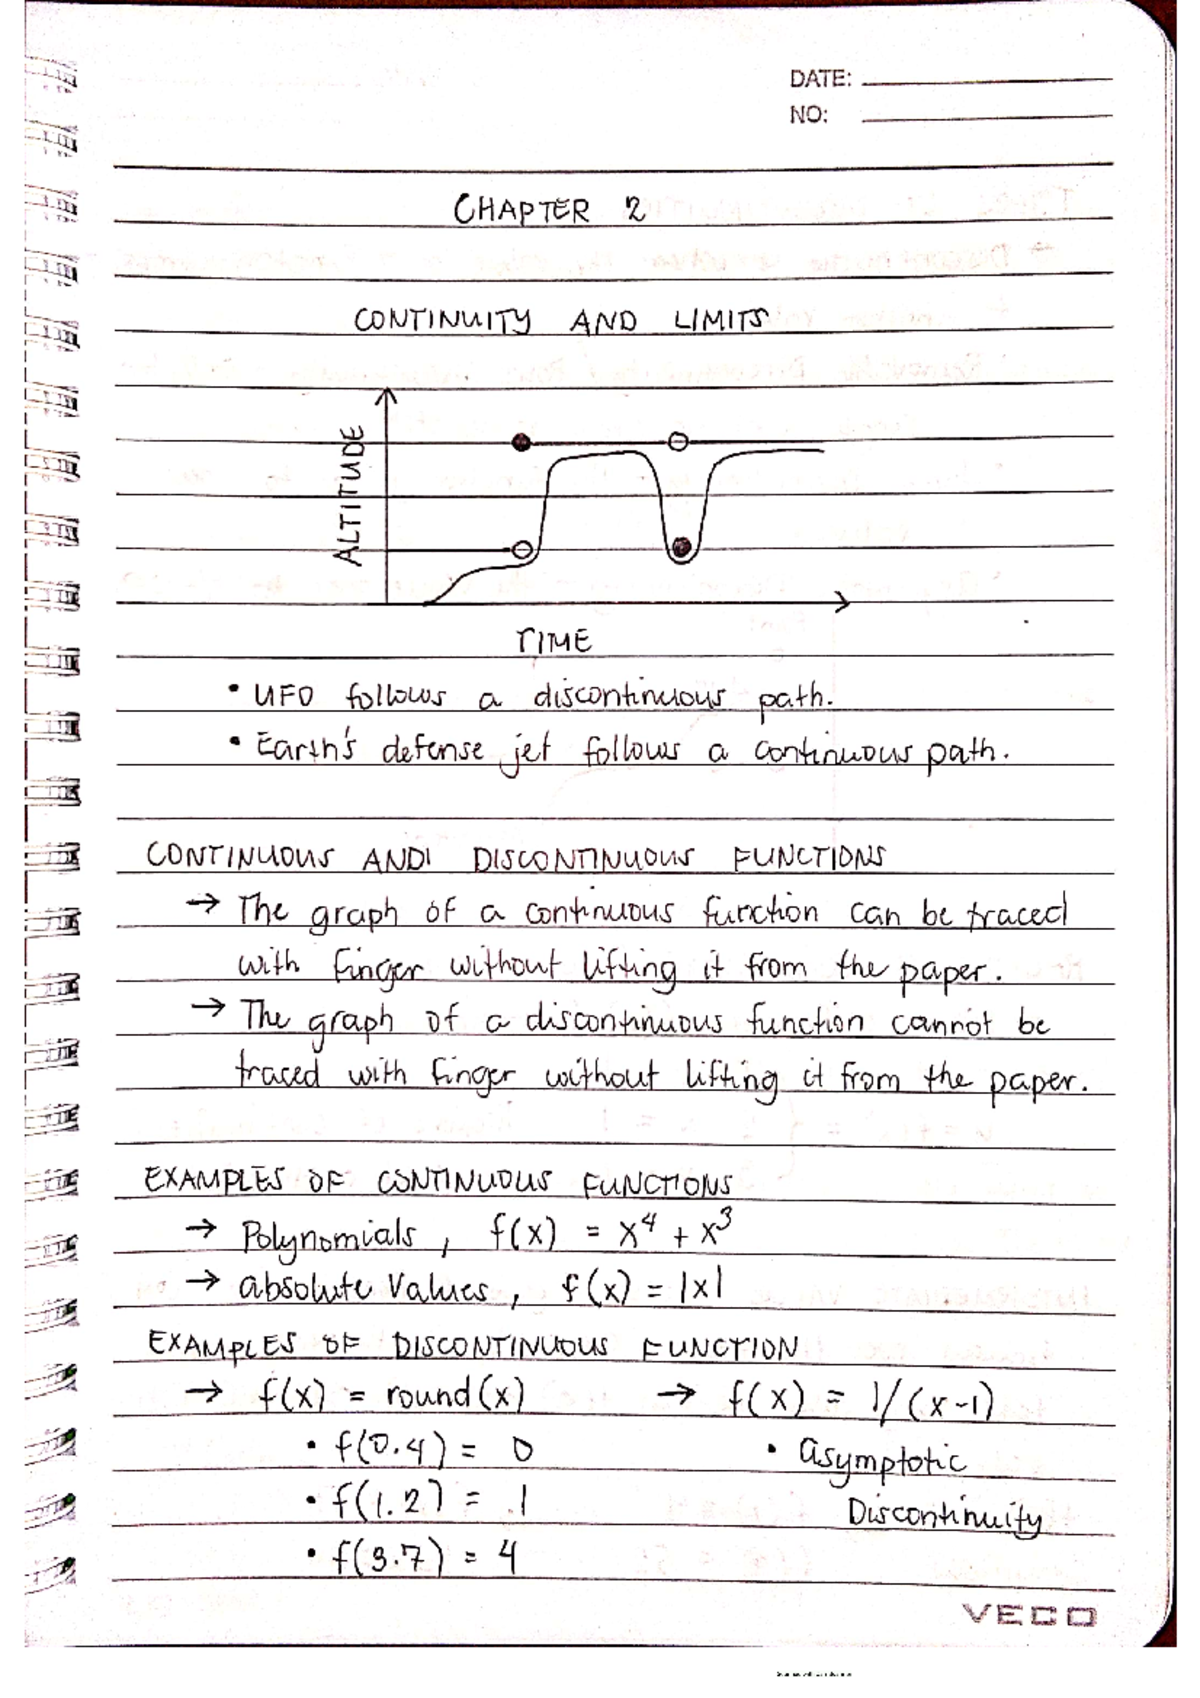 DATE:
NO:
CHAPTER 2
CONTINUITY AND LIMITS
ALTITUDE
TIME
• UFO follows a discontinuous path.
• Earth's defense jet follows a continuous path.
CONTINUOUS AND DISCONTINUOUS FUNCTIONS
→ The graph of a continuous function can be traced
with finger without lifting it from the paper.
→ The graph of a discontinuous function cannot be
traced with finger without lifting it from the paper.
EXAMPLES OF CONTINUOUS FUNCTIONS
→ Polynomials, f(x) = x⁴ + x³
→ absolute Values, f(x) = |x|
EXAMPLES OF DISCONTINUOUS FUNCTION
→ f(x) = round(x) → f(x) = 1/(x-1)
• f(0.4) = 0 • Asymptotic
• f(1.2) = 1 Discontinuity
• f(3.7) = 4
VECO